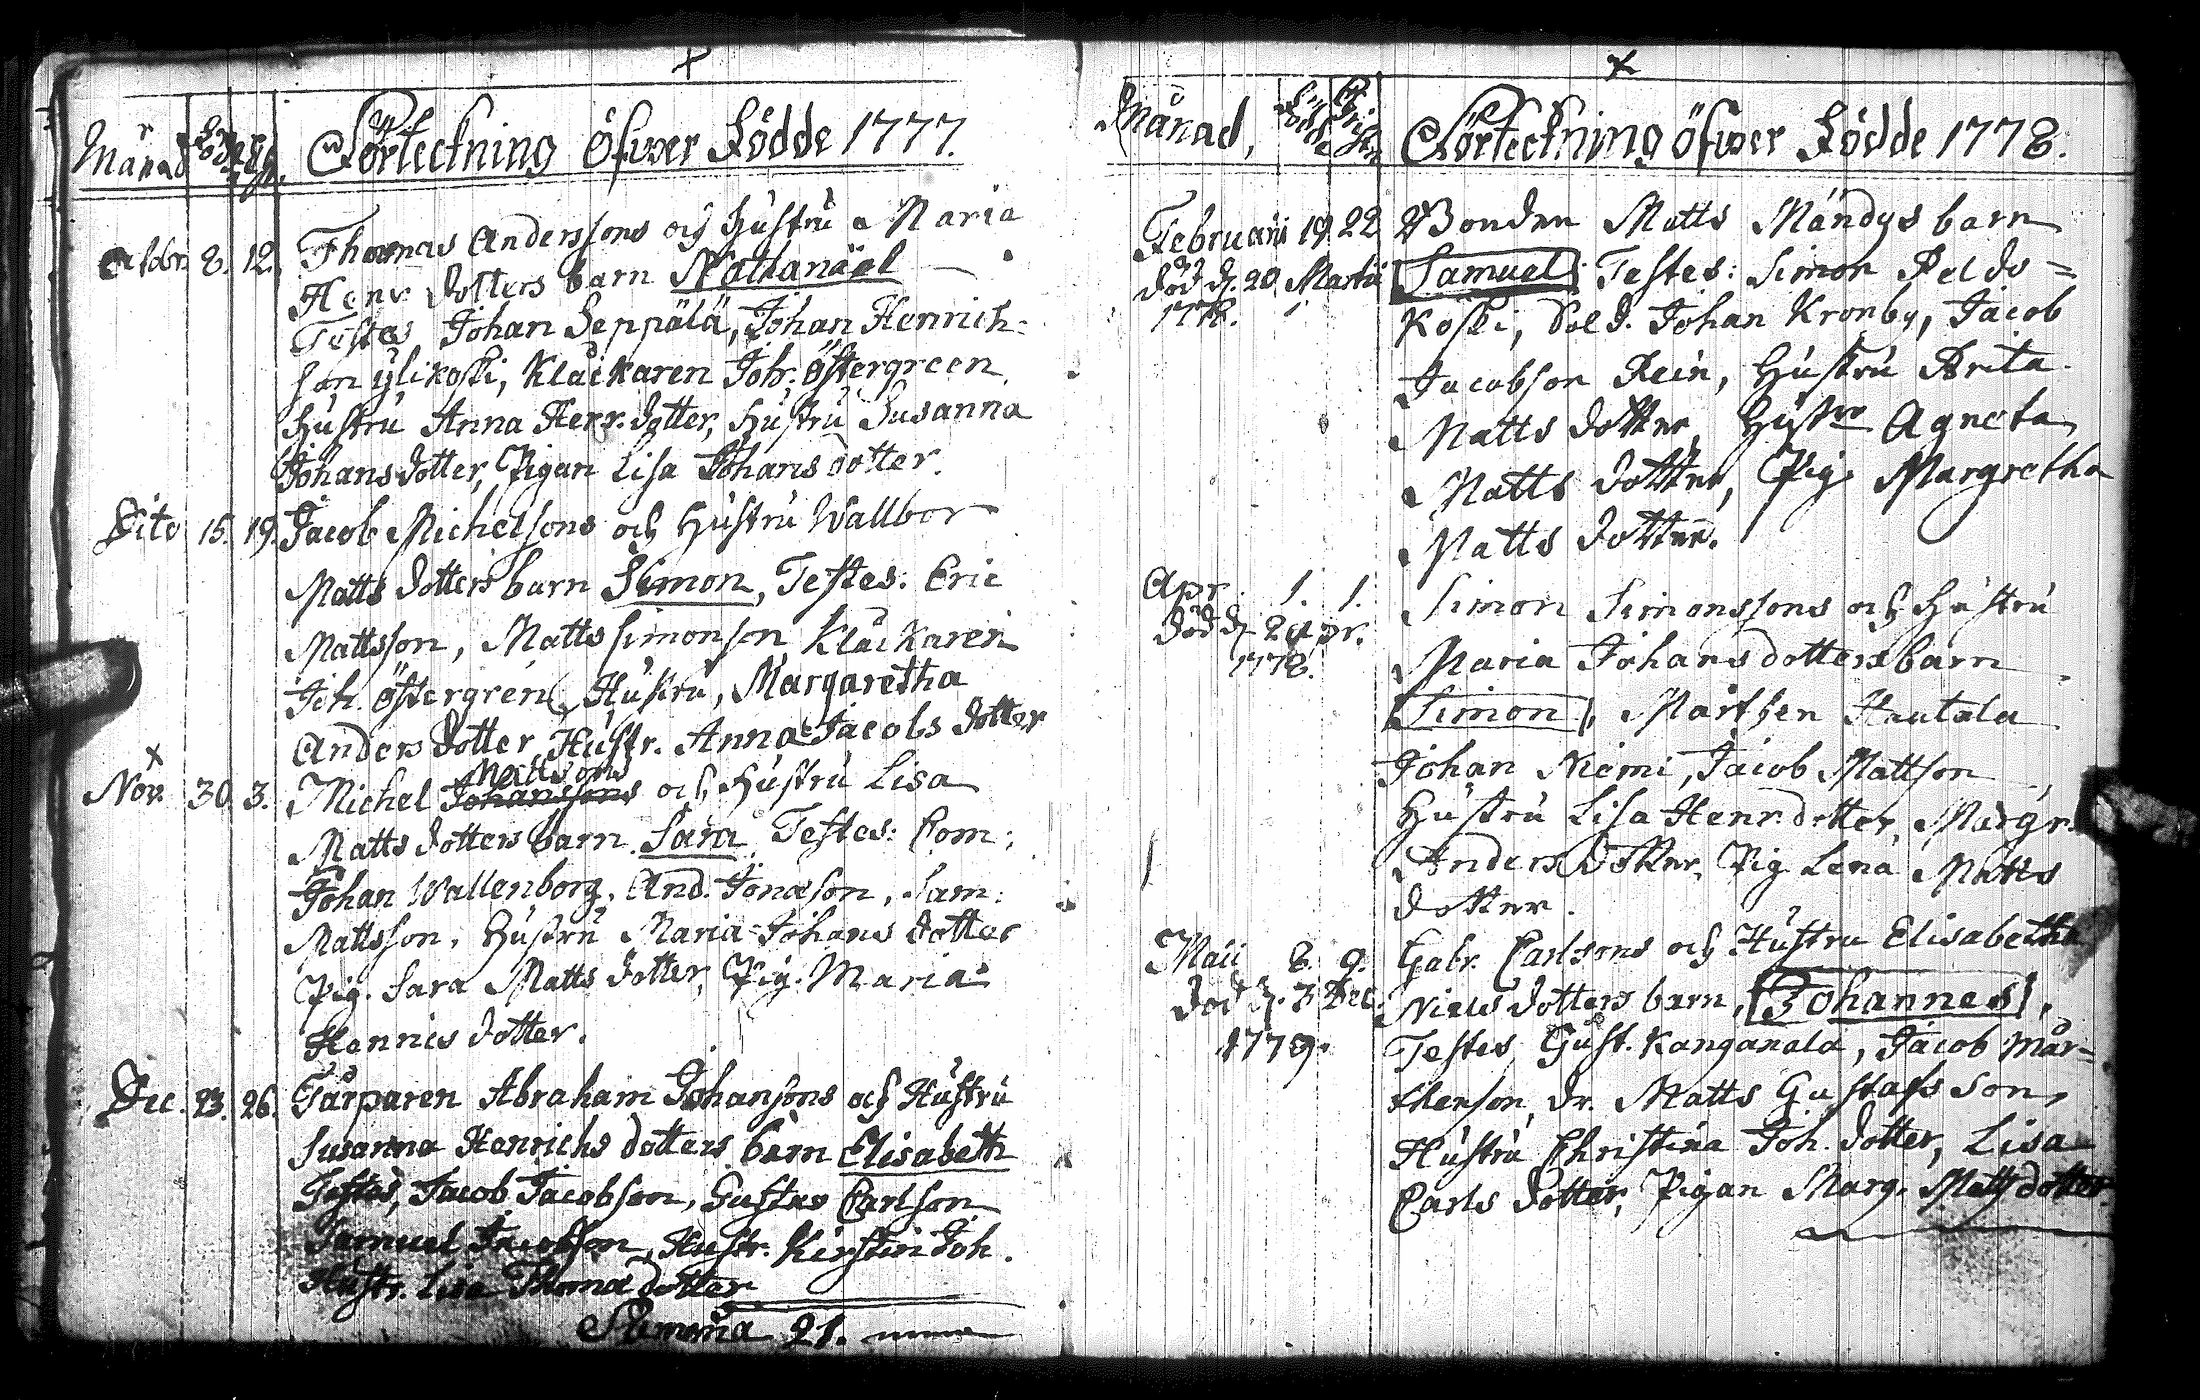 Månad Födde Christn. Förteckning öfwer Födde 1777.
Octobr. 8. 12. Thomas Anderssons och Hustru Maria
Henr. dotters barn Nathanäel
Testes, Johan Seppälä, Johan Henrich=
son ylikoski, Klåckaren Joh. Östergreen
Hustru Anna Henr. dotter, Hustru Susanna
Johans dotter, Pigan Lisa Johans dotter.
Dito 15. 19. Jacob Michelsons och Hustru Wallbor
Matts dotters barn Simon, Testes. Eric
Mattsson, Matts simonson Klåckaren
Joh. Östergren, Hustru, Margaretha
Anders dotter, Hustr. Anna Jacobs dotter
Nov. 30. 3. Michel Johanssons Mattsons och Hustru Lisa
Matts dotters barn Sara Testes: Com:
Johan Wallenborg, And. Jonæson, Sam:
Mattsson, Hustru Maria Johans dotter
Pig. Sara Matts dotter, Pig. Maria
Hennics dotter.
Dec. 23. 26. Tårparen Abraham Johansons och Hustru
Susanna Henrichs dotters barn Elisabeth
Testes, Jacob Jacobson, Gustav Carlson
Samuel Jacobson, Hustr. Kirstin Joh.
Hustr. Lisa Thomæ dotter
Summa 21.
Månad, Födde Christn Förteckning öfwer Födde 1778.
Februarii 19 22 Bonden Matts Mándys barn
död d. 20 Martii Samuel Testes: Simon Peldo=
1778. Koski, Sold. Johan Kronby, Jacob
Jacobson Rein, Hustru Brita
Matts dotter, Hustru Agneta
Matts dotter, Pig. Margretha
Matts dotter.
Apr. 1. 1. Simon Simonssons och Hustru
död d. 2 apr. Maria Johans dotters barn
1778. Simon, Mårthen Hautala
Johan Niemi, Jacob Mattson
Hustru Lisa Henr. dotter, Margr.
Anders dotter, Pig Lena Matts
dotter.
Maii 8. 9. Gabr. Carlsons och Hustru Elisabetha
död d. 3 Dec. Niels dotters barn, Johannes,
1779. Testes, Gust. Kanganala, Jacob Mår=
thenson, Dr. Matts Gustafsson,
Hustru Christina Joh. dotter, Lisa
Carls dotter, Pigan Marg. Matts dotter